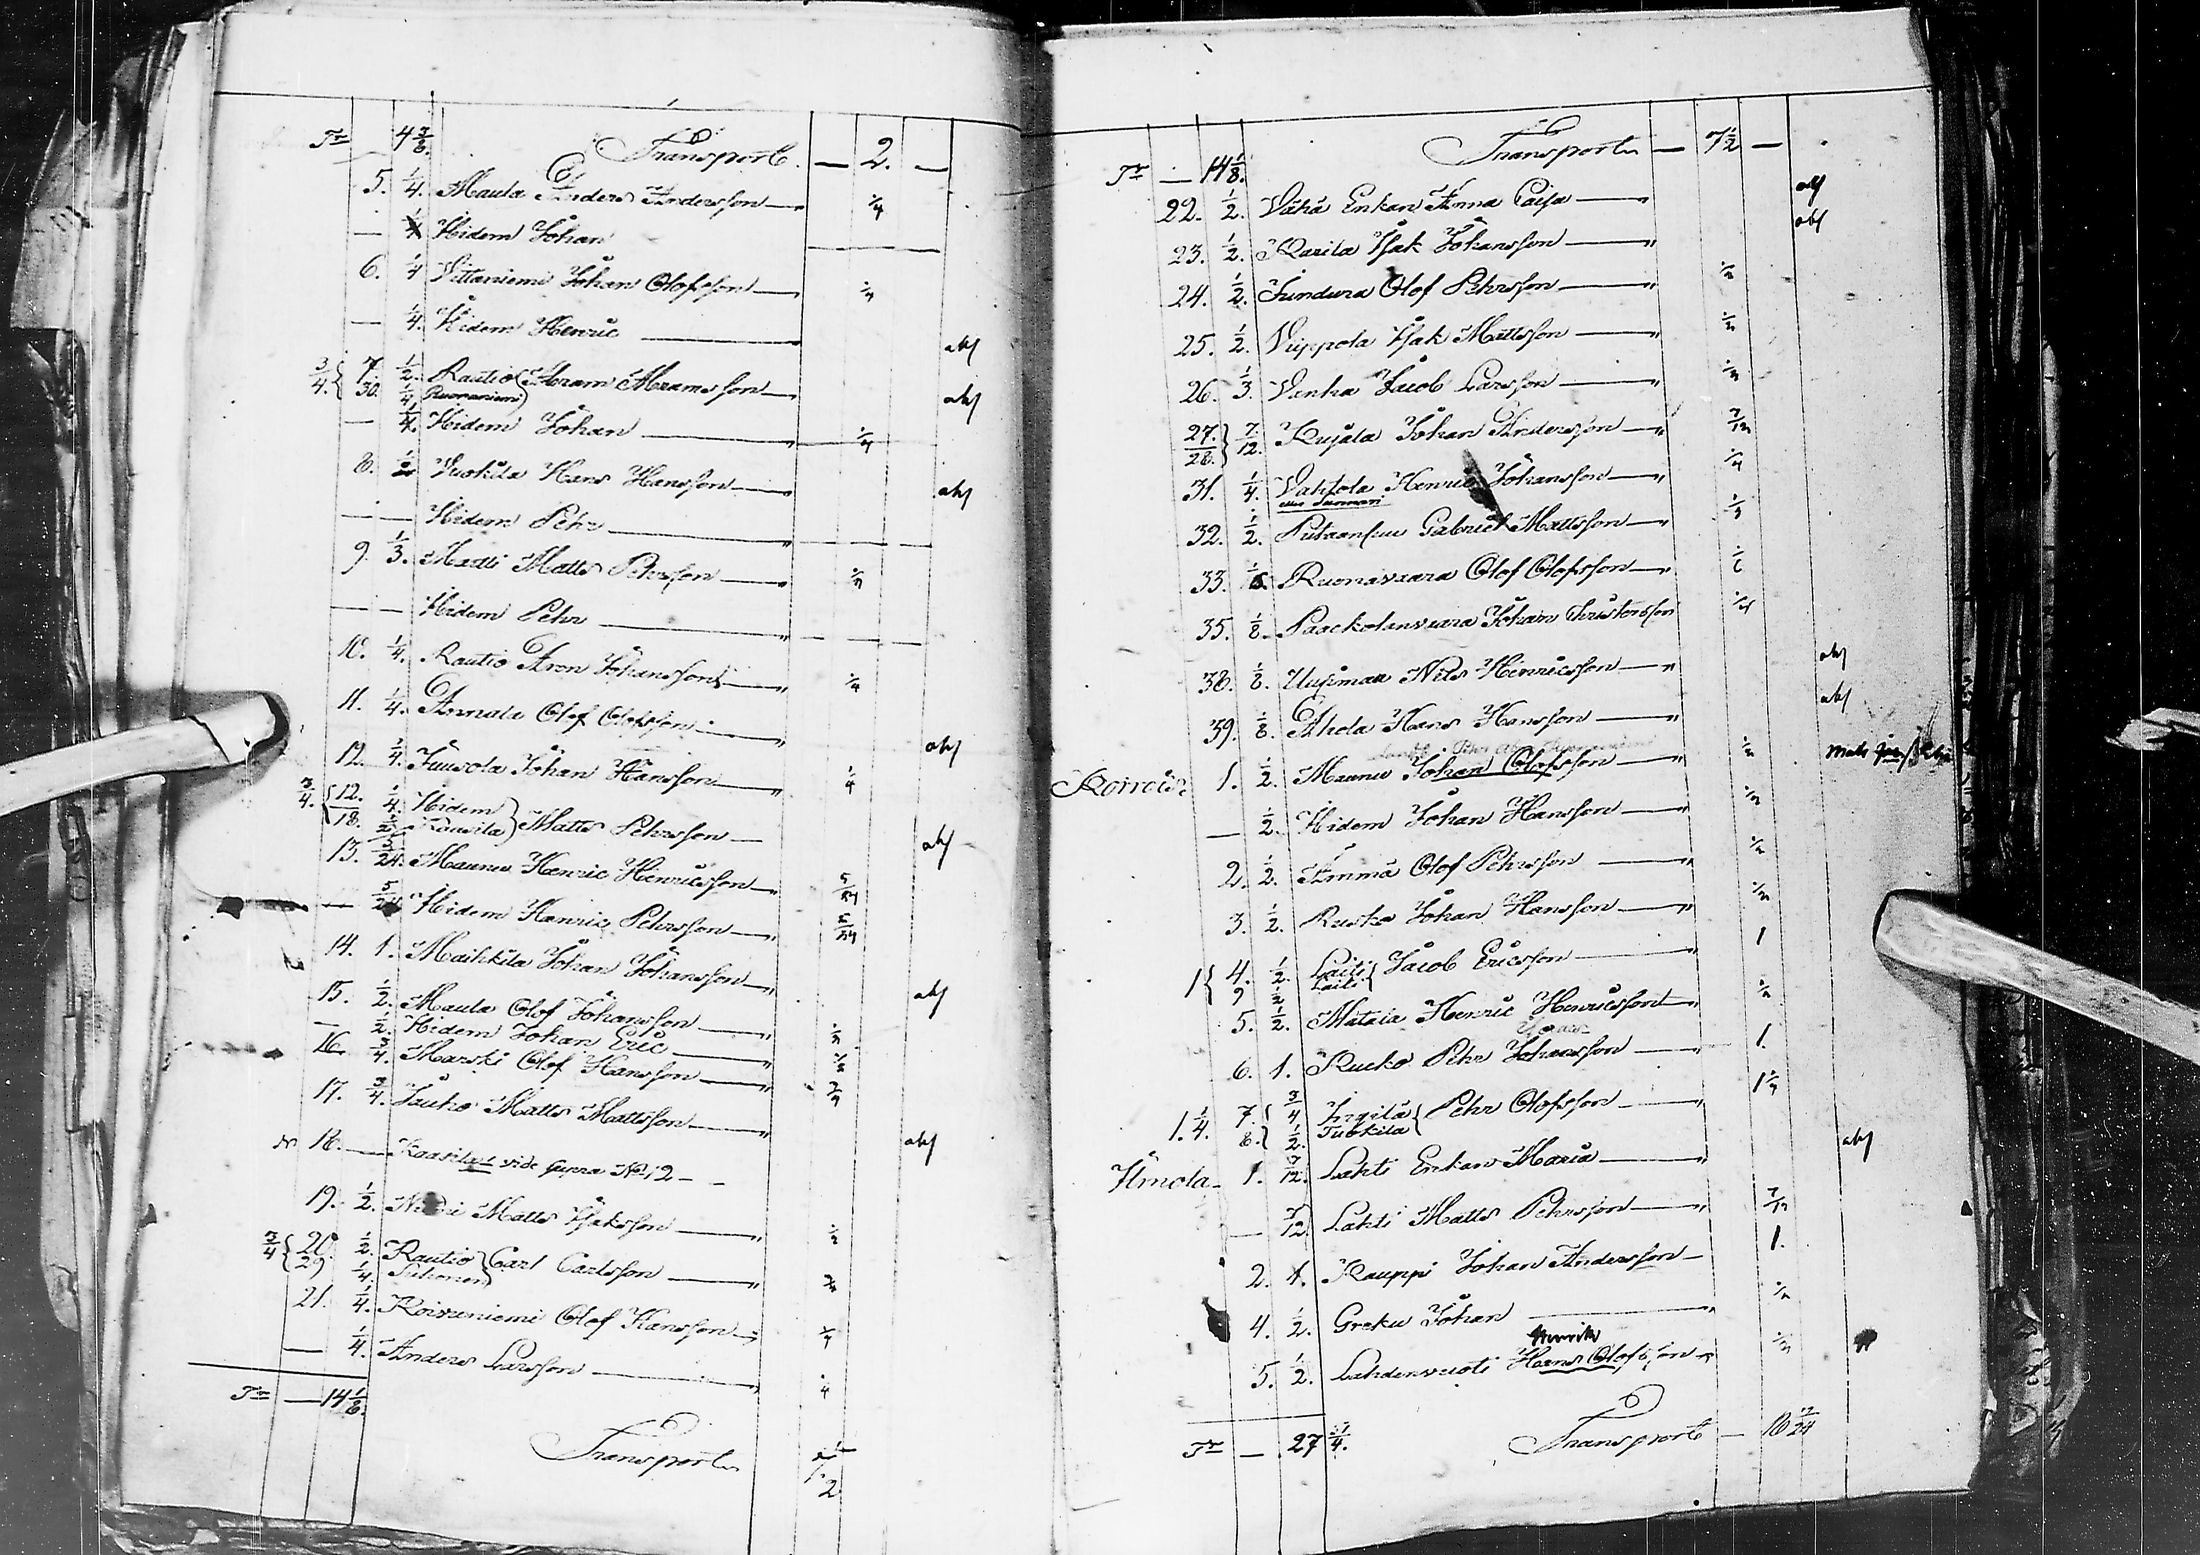 Tr — 4 3/8. Transport — 2. —
5. 1/4. Maula Anders Andersson — " 1/4
— 1/4 Hidem Johan
6. 1/4 Vittaniemi Johan Olofsson — " 1/4
— 1/4. Hidem Henric — " abs
3/4. { 7. 1/2. Rautio Abram Abramsson — " abs
30. 1/4 Ruonaniemi
— 1/4. Hidem Johan — " 1/4
8. 1/2 Vuokila Hans Hansson — " abs
— — Hidem Pehr — "
9. 1/3. Martti Matts Pehrsson — " 1/3
— — Hidem Pehr — "
10. 1/4. Rautio Aron Johansson — " 1/4
11. 1/4. Annala Olof Olofsson — " abs
12. 1/4. Juusola Johan Hansson — " 1/4
3/4. { 12. 1/4. Hidem } Matts Pehrsson — abs
18. 1/2 Kaasila
13. 5/24. Maunu Henric Hinricsson — " 5/24
— 5/24 Hidem Henric Pehrsson — " 5/24
14. 1. Maikkila Johan Johansson — " abs
15. 1/2. Maula Olof Johansson — " 1/2
— 1/2. Hidem Johan Eric — " 1/2
16. 3/4. Marski Olof Hansson — " 3/4
17. 3/4. Jauho Matts Mattsson — " abs
18. — Kaasila vide supra No 12 — —
19. 1/2. Matts Isaksson — " 1/2
3/4 { 20. 1/2. Rautio } Carl Carlsson — "
29 1/4. Juhonen
21. 1/4. Koivuniemi Olof Hansson — " 1/4
— 1/4. Anders Larsson — " 1/4
Tr — 14 1/8. Transport 7 1/2
Tr — 14 1/8. Transport — 7 1/2 —
22. 1/2. Vähä Enkan Anna Caisa — " abs
23. 1/2. Karila Isak Johansson — " abs
24. 1/2. Jundura Olof Pehrsson — " 1/2
25. 1/2. Viippola Isak Mattsson — " 1/2
26. 1/3. Vanha Jacob Larsson — " 1/3
27. 28. } 7/12. Kujala Johan Andersson — " 7/12
31. 1/4. Vahtola Henric Johansson — " 1/4
32. 1/2. Putaansuu Gabriel Mattsson — " 1/2
33. 1/6 Ruonavaara Olof Olofsson — " 1/6
35. 1/8. Paackolanvaara Johan Christersson 1/8
38. 1/8. Uusimaa Nils Hinricsson — " abs
39. 1/8. Ahola Hans Hansson — " abs
Korrois. 1. 1/2. Maunu Johan Olofsson — " 1/2
— 1/2. Hidem Johan Hansson — " 1/2
2. 1/2. Ämmä Olof Pehrsson — " 1/2
3. 1/2. Ruska Johan Hansson — " 1/2
1 { 4. 1/2. Laiti } Jacob Ericsson — 1
9 1/2 Laiti
5. 1/2. Mataia Henric Henricsson — " 1/2
6. 1. Rucko Pehr Johansson — " 1.
1. 1/4. 7. { 3/4 Ingilä } Pehr Olofsson — " 1 1/4
8. } 1/2. Tuokila
Ylmola. 1. 7/12. Lahti Enkan Maria — " abs
— 7/12. Lahti Matts Pehrsson — " 7/12
2. 1. Kauppi Johan Andersson — 1.
4. 1/2. Greku Johan — " 1/2
Henrik
5. 1/2. Lahdenvuoti Hans Olofsson — " 1/2
Tr — 27 3/4. Transport — 18 7/24